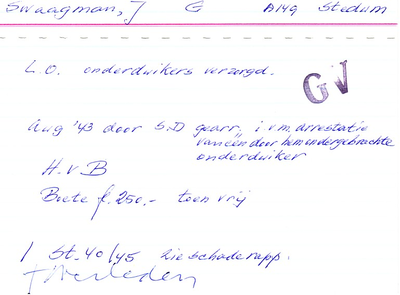 Swaagman, J G A149 Stedum
L.O. onderduikers verzorgd.
GV
Aug '43 door S.D gearr, i.v.m. arrestatie
van één door hem ondergebrachte
onderduiker
H.v.B
Boete f. 250.- toen vrij
/ St. 40/45 zie schaderapp.
† Overleden